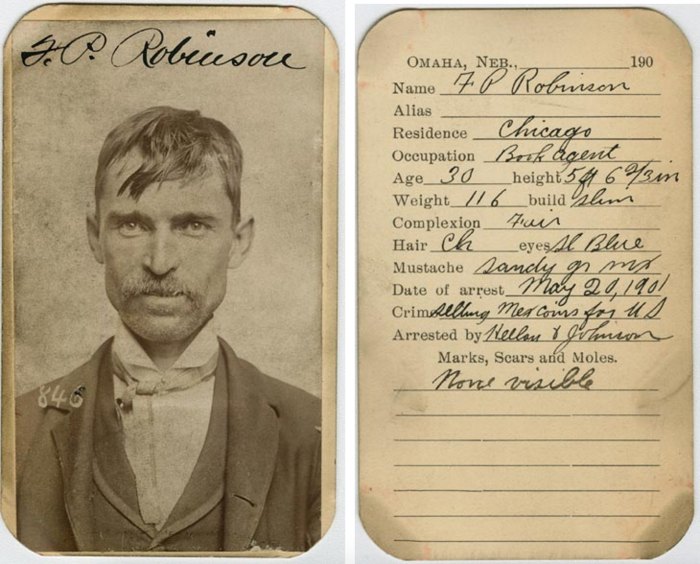 F. P. Robinson
846
OMAHA, NEB., 190
Name F P Robinson
Alias
Residence Chicago
Occupation Book agent
Age 30 height 5 ft 6 2/3 in
Weight 116 build slim
Complexion Fair
Hair Ch eyes Sl Blue
Mustache sandy gr mx
Date of arrest May 20, 1901
Crime selling Mex coins for US
Arrested by & Johnson
Marks, Scars and Moles.
None visible